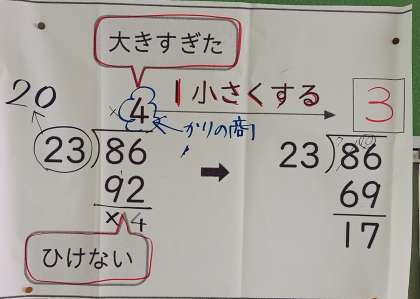 大きすぎた
20
×4
1小さくする
3
かりの商
23)86
92
×4
ひけない
➡
23)86
69
17